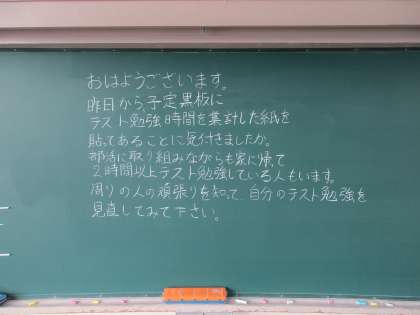 おはようございます。
昨日から、予定黒板に
テスト勉強時間を集計した紙を
貼ってあることに気付きましたか。
部活に取り組みながらも家に帰て
２時間以上テスト勉強している人もいます。
周りの人の頑張りを知って、自分のテスト勉強を
見直してみて下さい。